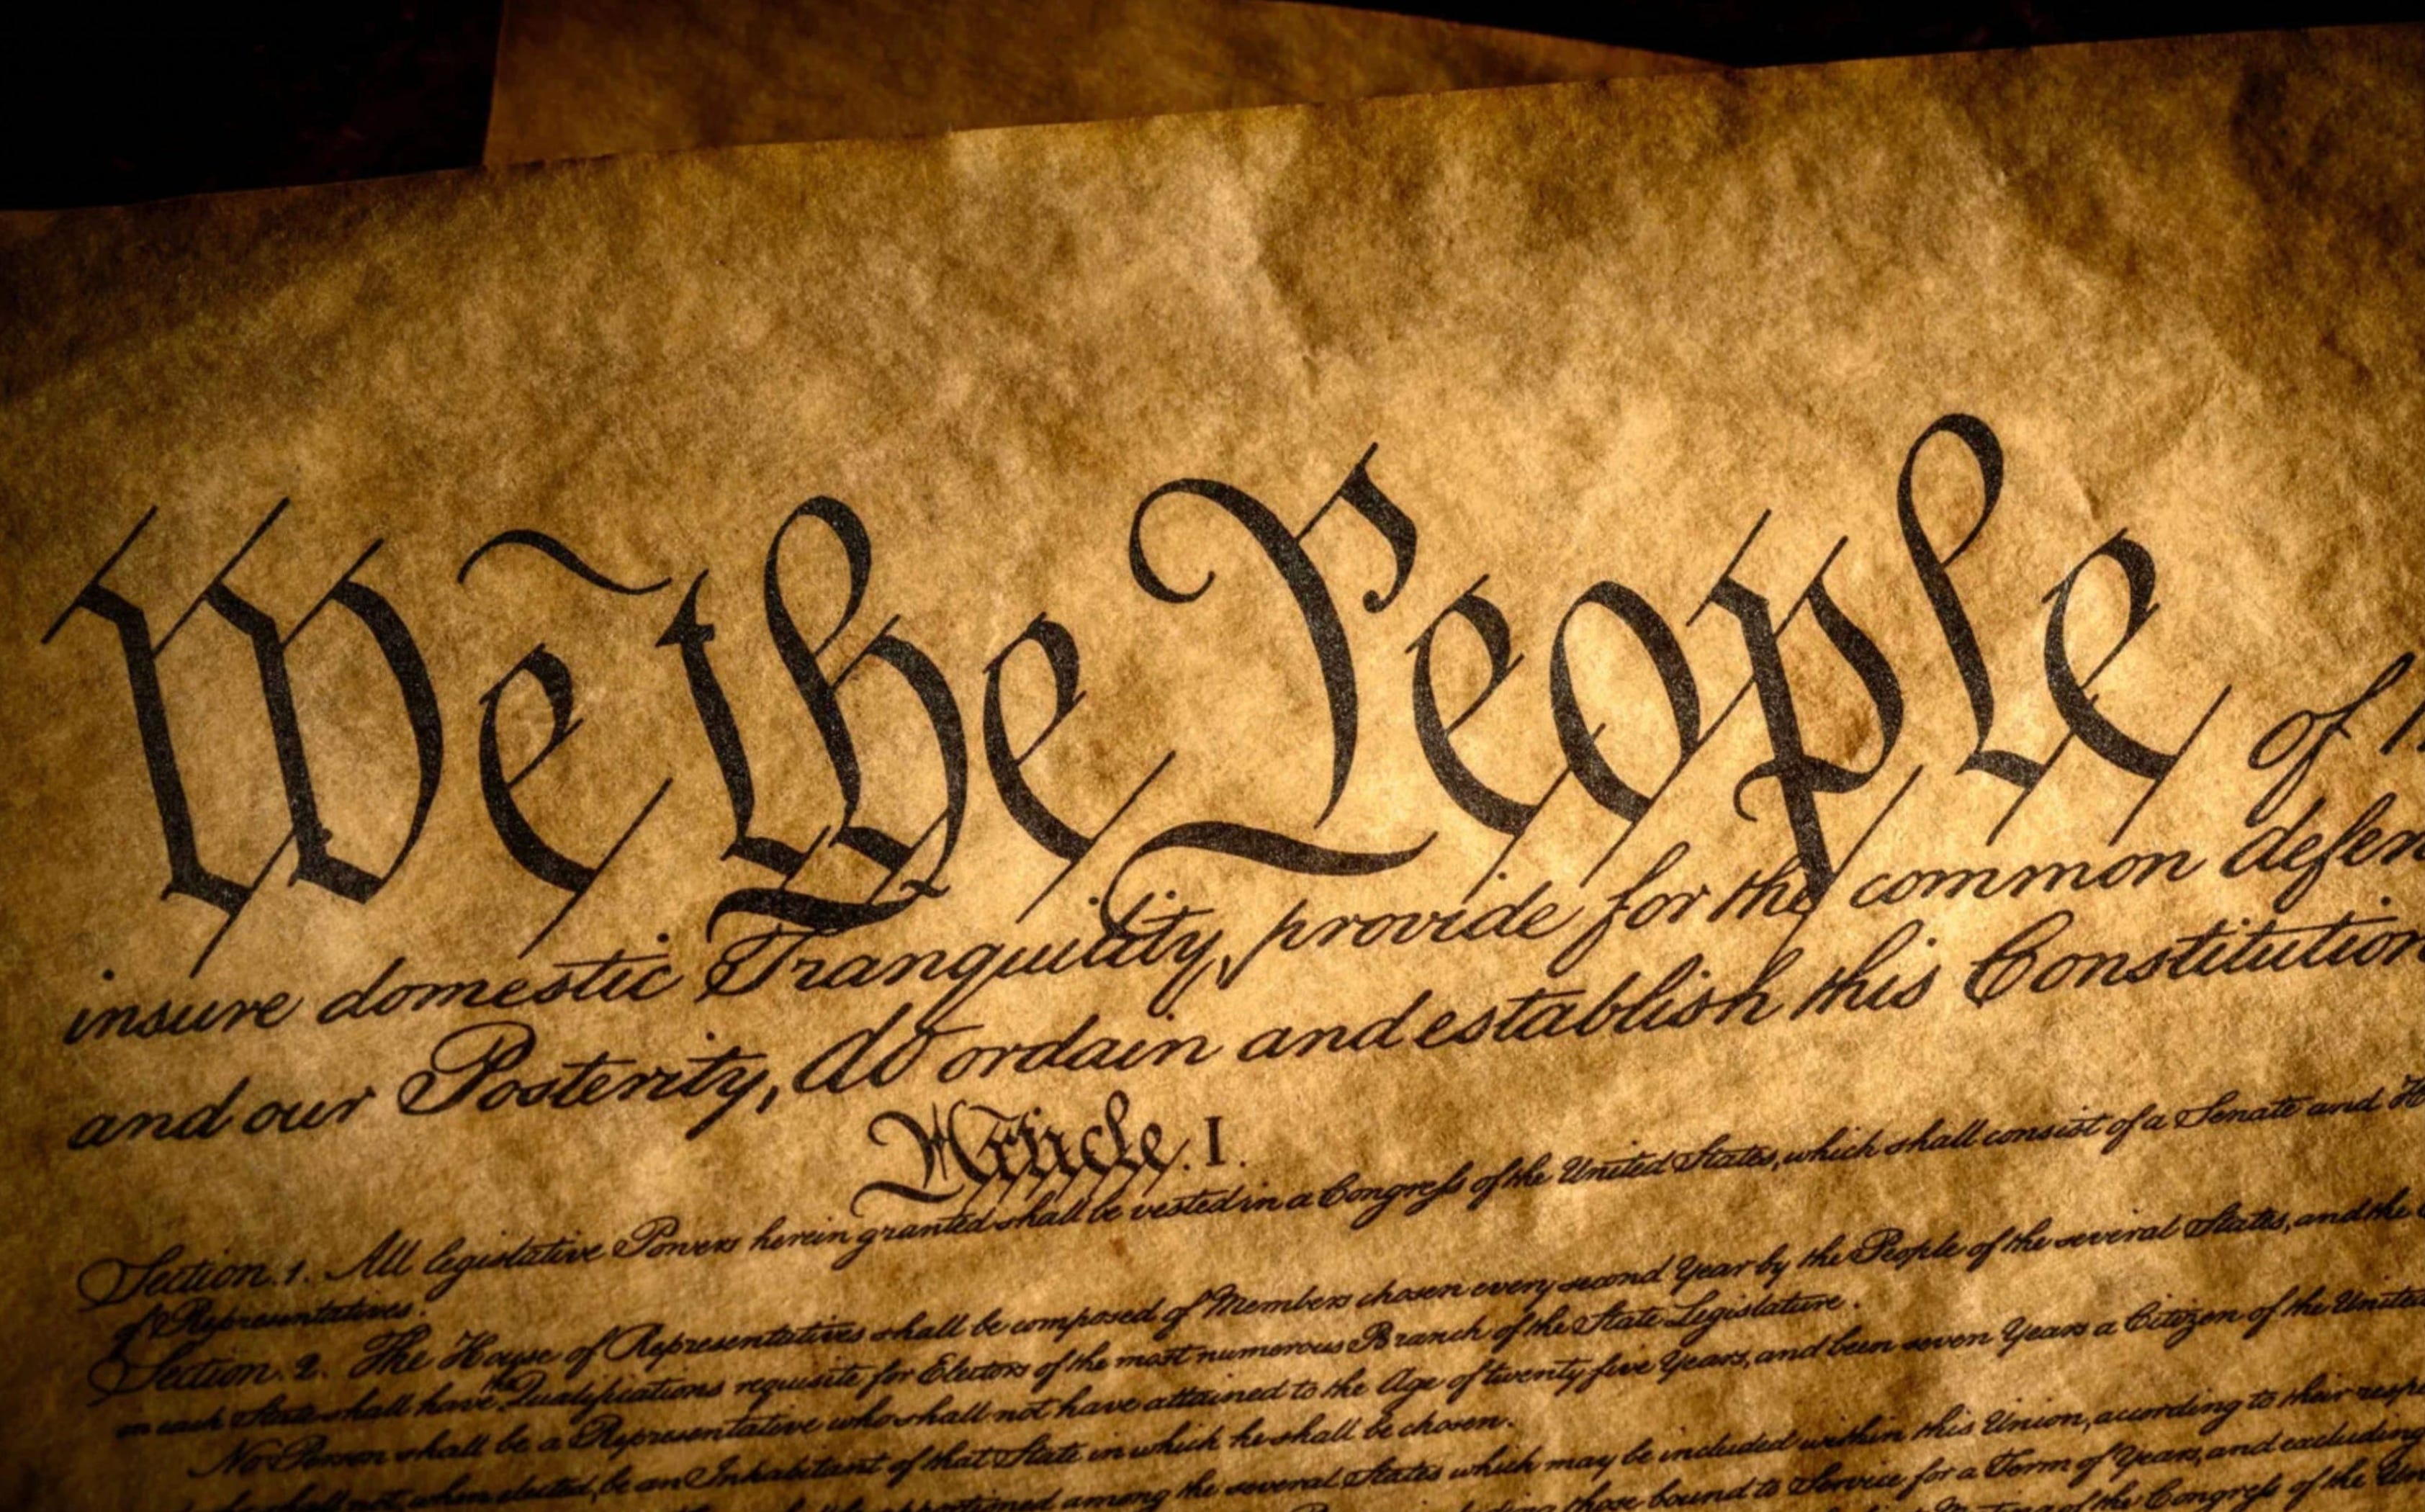 We the People of
insure domestic Tranquility, provide for the common defen
and our Posterity, do ordain and establish this Constitution
Article. I.
Section. 1. All legislative Powers herein granted shall be vested in a Congress of the United States, which shall consist of a Senate and
of Representatives.
Section. 2. The House of Representatives shall be composed of Members chosen every second Year by the People of the several States, and the
in each State shall have the Qualifications requisite for Electors of the most numerous Branch of the State Legislature.
No Person shall be a Representative who shall not have attained to the Age of twenty five Years, and been seven Years a Citizen of the United
shall not, when elected, be an Inhabitant of that State in which he shall be chosen.
apportioned among the several States which may be included within this Union, according to their resp
those bound to Service for a Term of Years, and excluding
Meeting of the Congress of the Un